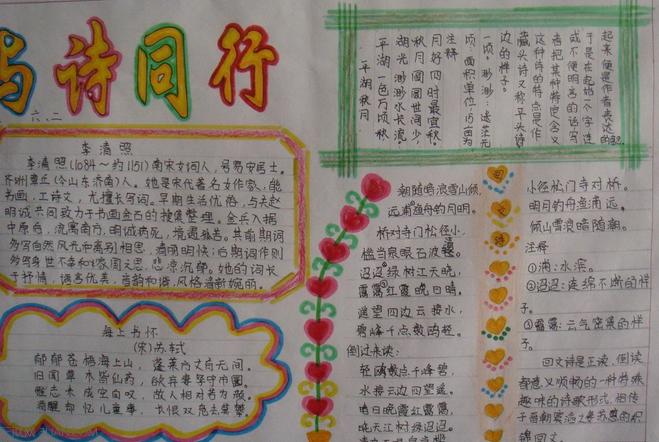 与诗同行
六、二
李清照
李清照(1084~约1151)南宋女词人，号易安居士。
齐州章丘(今山东济南)人。她是宋代著名女作家，能
书画，工诗文，尤擅长写词。早期生活优裕，与夫赵
明诚共同致力于书画金石的搜集整理。金兵入据
中原后，流寓南方，明诚病死，境遇孤苦。其前期词
多写自然风光和离别相思，清丽明快；后期词作则
多写身世不幸和家国之思，悲凉沉郁。她的词长
于抒情，语言优美，音韵和谐，风格清新婉丽。
海上书怀
(宋)苏轼
郁郁苍梧海上山，蓬莱方丈有无间。
旧闻草木皆仙药，欲弃妻孥守市圜。
故人相对
长恨双
平湖秋月
平湖一色万顷秋，
湖光渺渺水长流。
秋月圆圆世间少，
月好四时最宜秋。
注释
顷：面积单位，15亩为
一顷。渺渺：远茫无
边的样子。
藏头诗又称"平头诗"
这种诗的特点是作
者把某种特定含义
或不便明言的话写
于是在起始一个字，连
起来便是作者表达的
潮随暗浪雪山倾，
远浦渔舟钓月明。
桥对寺门松径小，
槛当泉眼石波清。
迢迢绿树江天晓，
霭霭红霞晚日晴。
遥望四边云接水，
碧峰千点数鸥轻。
倒过来读：
轻鸥数点千峰碧，
水接云边四望遥。
晴日晚霞红霭霭，
晓天江树绿迢迢。
回
文
诗
小径松门寺对桥。
明月钓舟渔浦远，
倾山雪浪暗随潮。
注释
①浦：水滨。
②迢迢：连绵不断的样
子。
③霭霭：云气密集的样
子。
回文诗是正读、倒读
都意义顺畅的一种特殊
趣味的诗歌形式，相传